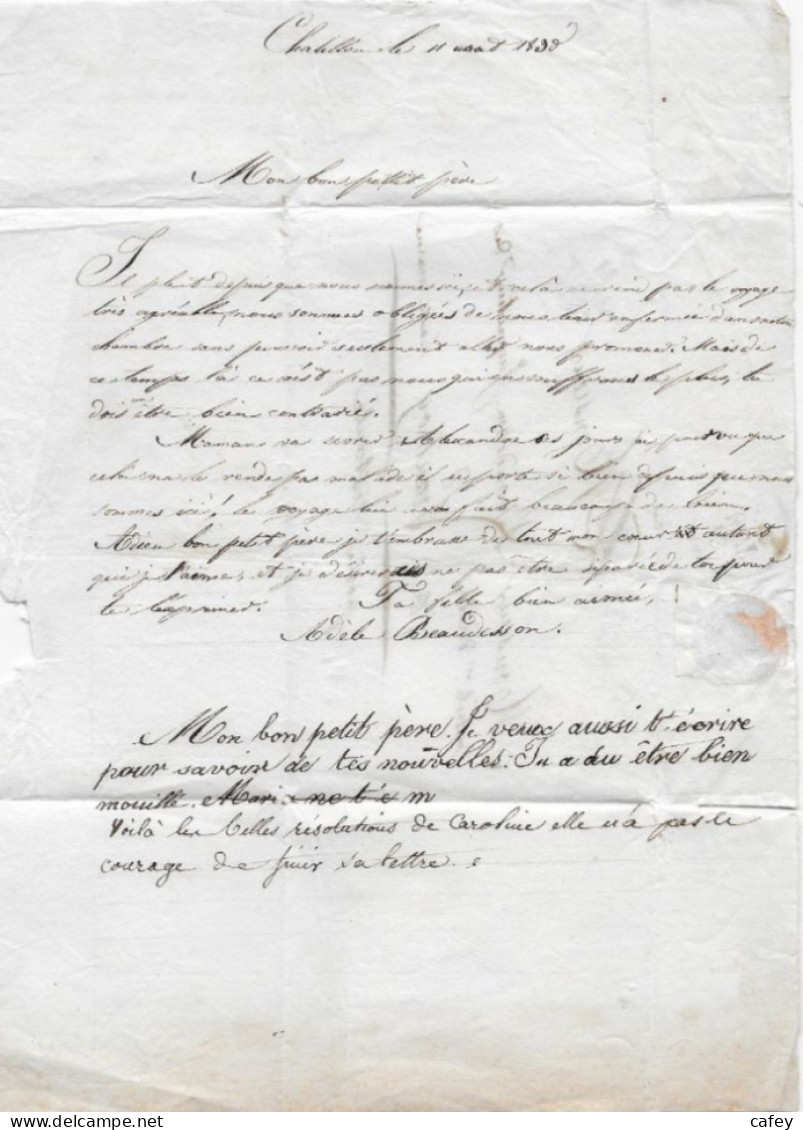 Chatillon le 11 aout 183
Mon bon petit père
Il pleut depuis que nous sommes ici, et cela ne rend pas le voyage
très agréable, nous sommes obligées de nous tenir enfermée dans notre
chambre sans pouvoir seulement aller nous promener. Mais de
ce temps là ce n'est pas nous qui en souffrons le plus, tu
dois être bien contrarié.
Maman va avoir Alexandre ces jours ci, pourvu que
cela ne le rende pas malade il se porte si bien depuis que nous
sommes ici! le voyage lui a fait beaucoup de bien.
Adieu bon petit père je t'embrasse de tout mon cœur et autant
que je t'aime, et je désirerais ne pas être séparée de toi pour
te l'exprimer. Ta fille bien aimée,
Adèle Beaudesson.
Mon bon petit père Je veux aussi t'écrire
pour savoir de tes nouvelles. Tu a du être bien
mouillé. Mari ne t'e m
Voilà les belles résolutions de Caroline elle n'a pas le
courage de finir sa lettre.
cafey